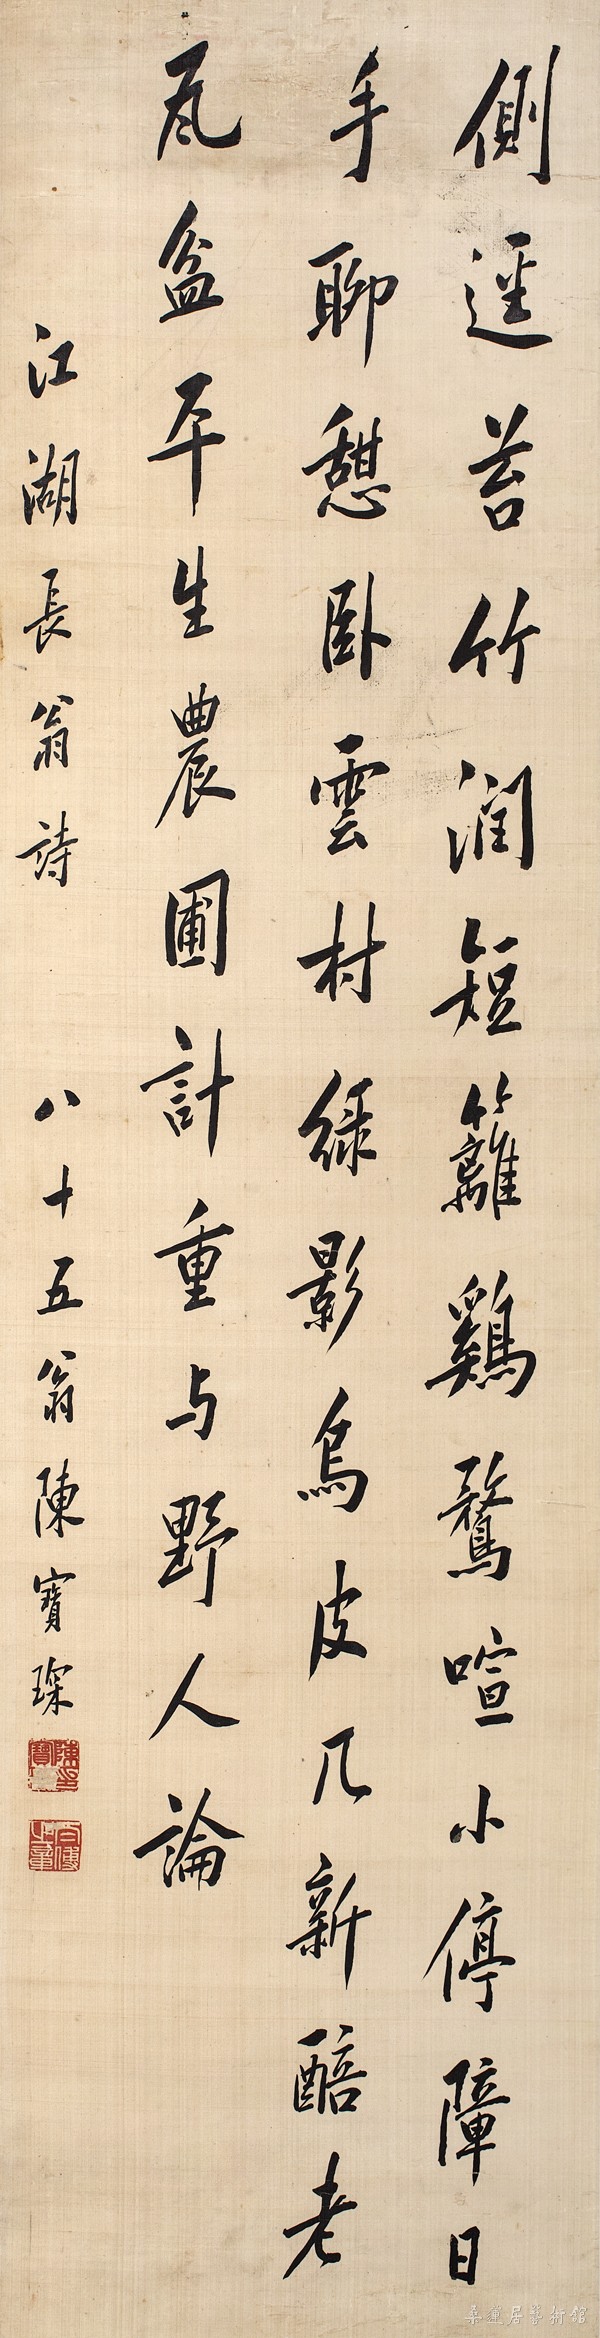 側逕苔竹潤短籬鷄鶩喧小停障日
手聊憩卧雲村緑影烏皮几新醅老
瓦盆平生農圃計重与野人論
江湖長翁詩 八十五翁陳寶琛
陳印寶琛